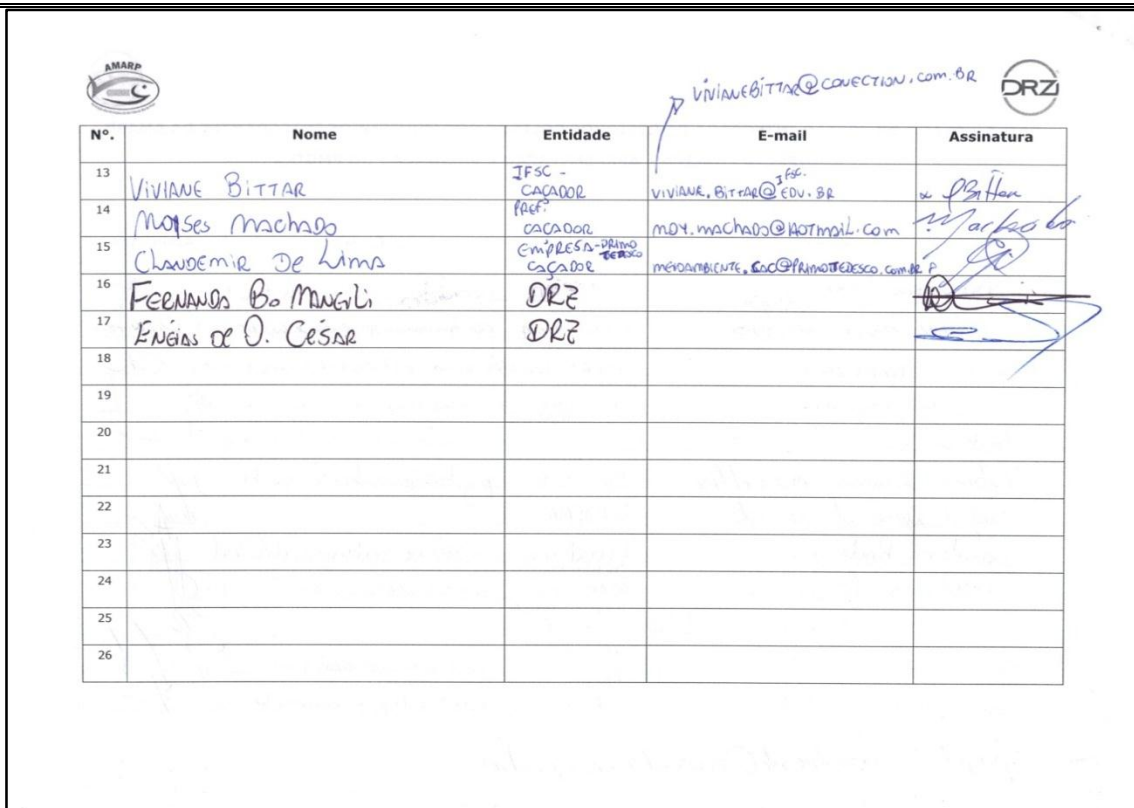 AMARP
VIVIANEBITTAR@CONECTION.COM.BR
DRZ
Nº. Nome Entidade E-mail Assinatura
13 VIVIANE BITTAR IFSC - CAÇADOR VIVIANE.BITTAR@IFSC.EDU.BR
14 MOISES MACHADO PREF. CAÇADOR MOY.MACHADO@HOTMAIL.COM Machado
15 CLAUDEMIR DE LIMA EMPRESA-PRIMO TEDESCO CAÇADOR MEIOAMBIENTE.CAC@PRIMOTEDESCO.COM.BR
16 FERNANDA DRZ
17 ENÉIAS DE O. CÉSAR DRZ
18
19
20
21
22
23
24
25
26